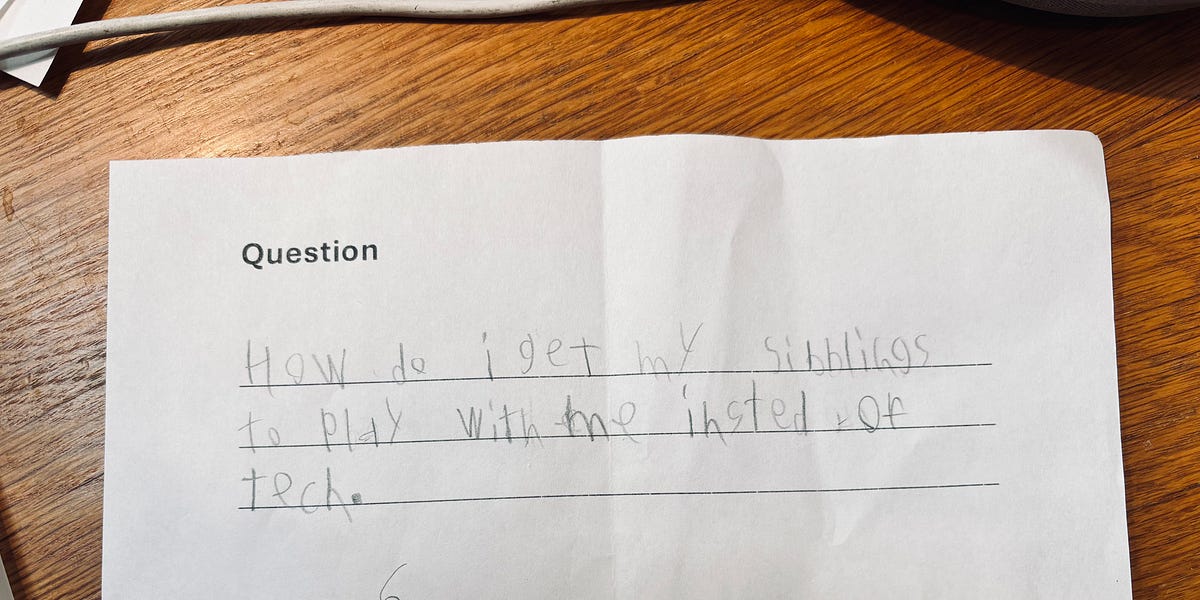 Question
How do i get my sibblings
to play with me insted of
tech.